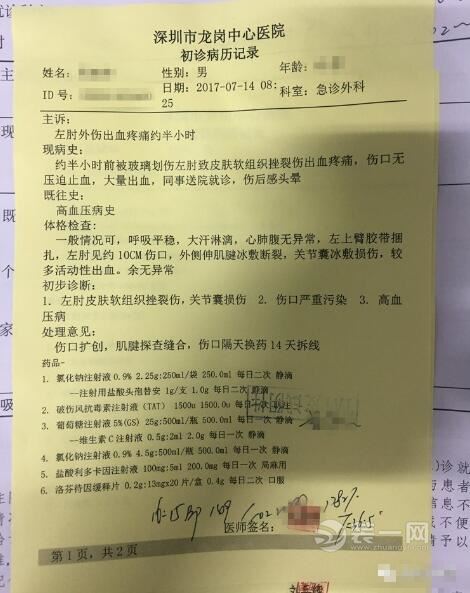 深圳市龙岗中心医院
初诊病历记录
姓名: 性别: 男 年龄:
ID号: 日期: 2017-07-14 08:25 科室: 急诊外科
主诉:
左肘外伤出血疼痛约半小时
现病史:
约半小时前被玻璃划伤左肘致皮肤软组织挫裂伤出血疼痛，伤口无
压迫止血，大量出血，同事送院就诊，伤后感头晕
既往史:
高血压病史
体格检查:
一般情况可，呼吸平稳，大汗淋漓，心肺腹无异常，左上臂胶带捆
扎，左肘见约10CM伤口，外侧伸肌腱冰敷断裂，关节囊冰敷损伤，较
多活动性出血。余无异常
初步诊断:
1. 左肘皮肤软组织挫裂伤，关节囊损伤 2. 伤口严重污染 3. 高血
压病
处理意见:
伤口扩创，肌腱探查缝合，伤口隔天换药14天拆线
药品-
1. 氯化钠注射液 0.9% 2.25g:250ml/袋 250.0ml 每日二次 静滴
--注射用盐酸头孢替安 1g/支 1.0g 每日二次 静滴
2. 破伤风抗毒素注射液 (TAT) 1500u 1500.0u 每日
3. 葡萄糖注射液5%(GS) 25g:500ml/瓶 500.0ml 每日一次 静滴
--维生素C注射液 0.5g:2ml 2.0g 每日一次 静滴
4. 氯化钠注射液 0.9% 4.5g:500ml/瓶 500.0ml 每日一次 静滴
5. 盐酸利多卡因注射液 100mg:5ml 200.0mg 每日一次 局麻用
6. 洛芬待因缓释片 0.2g:13mgx20 片/盒 0.4g 每日二次 口服
医师签名:
第1页，共2页
装一网